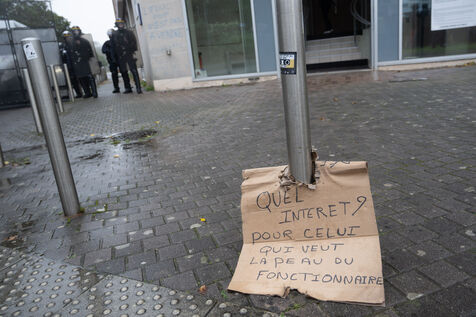 QUEL
INTERET ?
POUR CELUI
QUI VEUT
LA PEAU DU
FONCTIONNAIRE